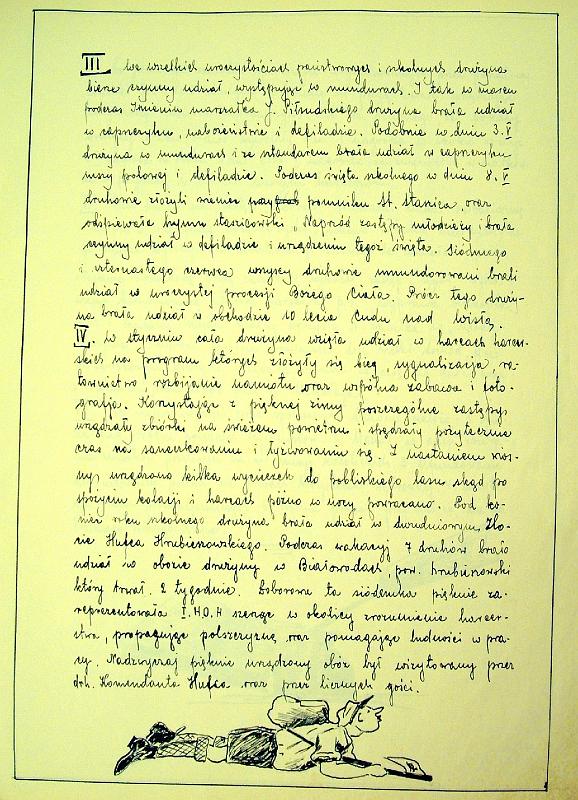 III We wszelkich uroczystościach państwowych i szkolnych drużyna
bierze czynny udział, występując w mundurach. I tak w marcu
podczas Imienin marszałka J. Piłsudskiego drużyna brała udział
w capstrzyku, nabożeństwie i defiladzie. Podobnie w dniu 3.V
drużyna w mundurach i ze sztandarem brała udział w capstrzyku
mszy polowej i defiladzie. Podczas święta szkolnego w dniu 8.V
druhowie złożyli wieniec pomniku St. Staszica, oraz
odśpiewała hymn staszicowski „Naprzód zastępy młodzieży i brała
czynny udział w defiladzie i urządzeniu tegoż święta. Siódmego
i czternastego czerwca wszyscy druhowie umundurowani brali
udział w uroczystej procesji Bożego Ciała. Prócz tego druży-
na brała udział w obchodzie 10 lecia Cudu nad Wisłą.
IV. W styczniu cała drużyna wzięła udział w harcach harcer-
skich na program których złożyły się bieg, sygnalizacja, ra-
townictwo, rozbijanie namiotu oraz wspólna zabawa i foto-
grafja. Korzystając z pięknej zimy poszczególne zastępy
urządzały zbiórki na świeżem powietrzu i spędzały pożytecznie
czas na saneczkowaniu i łyżwowaniu się. Z nastaniem wios-
ny, urządzono kilka wycieczek do pobliskiego lasu skąd po
spożyciu kolacji i harcach późno w nocy powracano. Pod ko-
niec roku szkolnego drużyna brała udział w dwudniowym Zlo-
cie Hufca Hrubieszowskiego. Podczas wakacyj 7 druhów brało
udział w obozie drużyny w Białowodach, pow. hrubieszowski
który trwał 2 tygodnie. Doborowa ta siódemka pięknie za-
reprezentowała I.H.D.H szerząc w okolicy zrozumienie harcer-
stwa, propagując polszczyznę oraz pomagając ludności w pra-
cy. Nadzwyczaj pięknie urządzony obóz był wizytowany przez
drh. Komendanta Hufca oraz przez licznych gości.